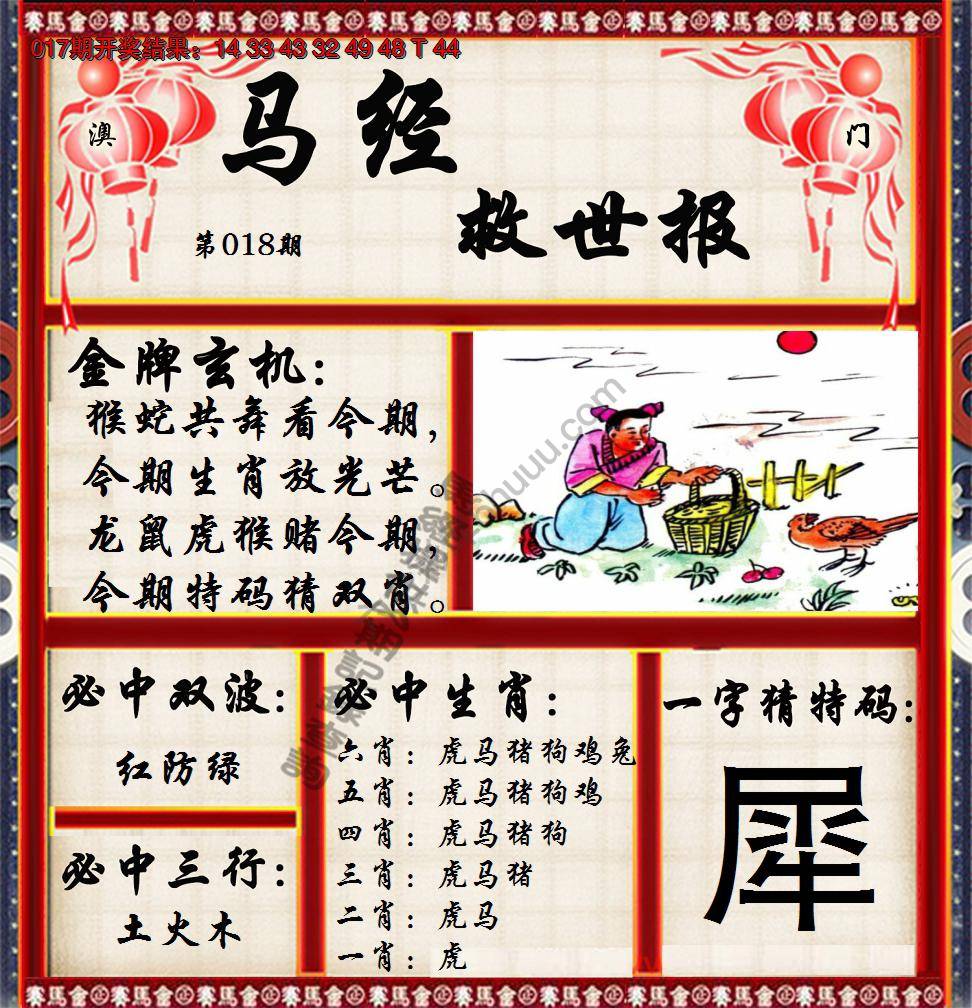 017期开奖结果：14 33 43 32 49 48 T 44
澳
门
马经
救世报
第018期
金牌玄机：
猴蛇共舞看今期，
今期生肖放光芒。
龙鼠虎猴赌今期，
今期特码猜双肖。
必中双波：
红防绿
必中三行：
土火木
必中生肖：
六肖：虎马猪狗鸡兔
五肖：虎马猪狗鸡
四肖：虎马猪狗
三肖：虎马猪
二肖：虎马
一肖：虎
一字猜特码：
犀